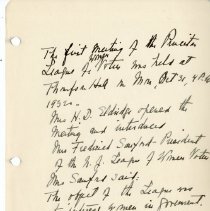 The first Meeting of the Princeton
League of Women Voters was held at
Thompson Hall on Mon, Oct 30, 4 P.M.
1932.
Mrs H. D. Eldridge opened the
Meeting and introduced
Mrs Frederick Sanford - President
of the N.J. League of Women Voters
Mrs Sanford said:
The object of the League was
to interest women in government.